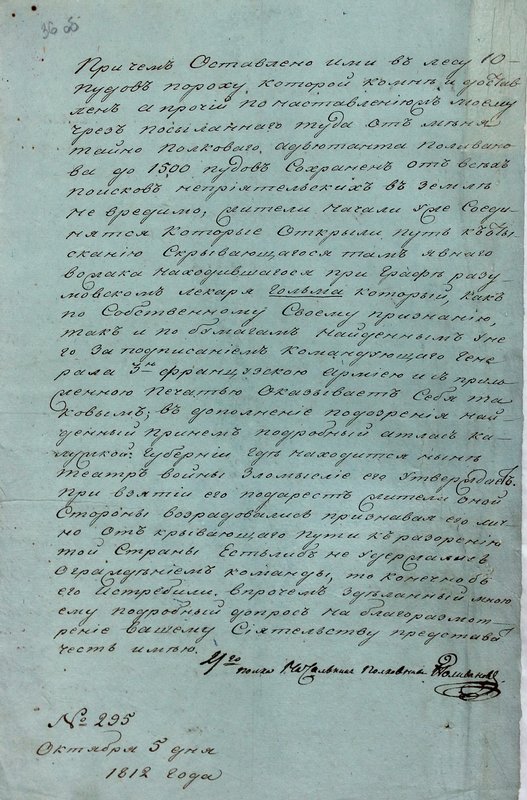 36 об
Причемъ Оставлено ими въ лесу 10-
пудовъ пороху, которой комнѣ и достав
ленъ а прочій по наставленіюжъ моему
чрезъ посыланнаго туда отъ мѣня
тайно полковаго, адъютанта Поливано
ва до 1500 пудовъ Сохраненъ отъ всѣхъ
поисковъ непріятельскихъ въ землѣ
не вредимо, жители начали уже Соеди
нятся которые Открыли путь къ
сканію Скрывающагося тамъ явнаго
находившагося при Графѣ разу
мовскомъ лекаря гольма который, какъ
по Собственному Своему признанію,
такъ и по бумагамъ найденнымъ у не
го за подписаніемъ командующаго Гене
рала французскою арміею и съ прило
женною Печатью Оказываетъ Себя та
ковымъ; въ дополненіе подозрѣнія най
денный принемъ подробный атласъ ка
лужской Губерніи Гдѣ находится нынѣ
театръ войны зломысліе его Утверждаетъ.
при взятіи его подарестъ жители оной
Стороны возрадовались признавая его
но отъ крывающаго пути къ разоренію
той Страны Естьлибъ не Удержались
огражденіемъ команды, то конечно бъ
его Истребили. впрочемъ зделанный мною
ему подробный допросъ на благоразмот
рѣніе Вашему Сіятельству представи
честь имѣю.
полка Начальникъ Полковникъ Поливановъ
№ 295
Октября 5 дня
1812 года